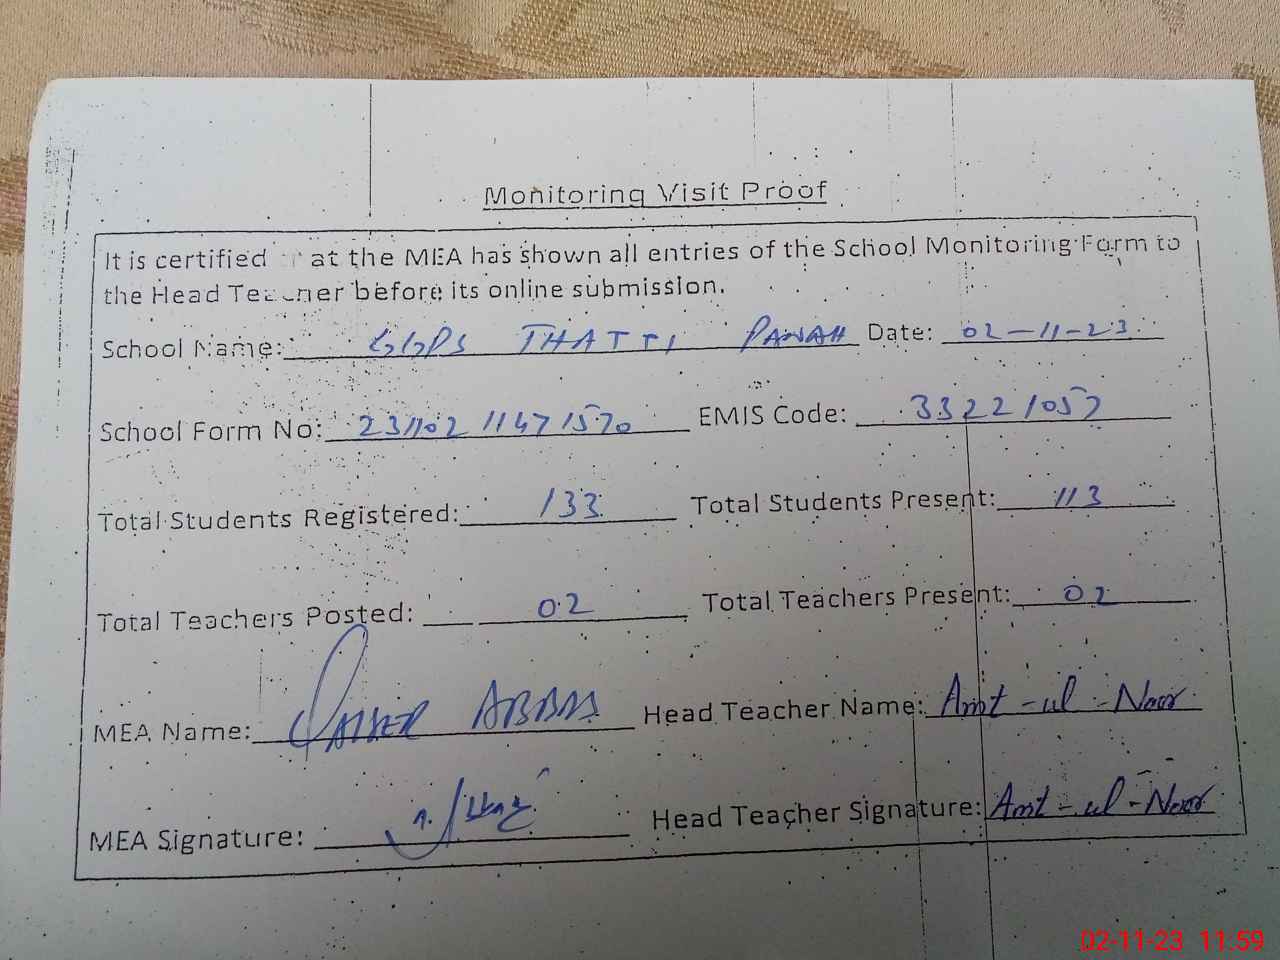 Monitoring Visit Proof
It is certified at the MEA has shown all entries of the School Monitoring Form to
the Head Teacher before its online submission.
School Name: GGPS THATTI PANAH Date: 02-11-23
School Form No: 231102 11471570 EMIS Code: 33221057
Total Students Registered: 133 Total Students Present: 113
Total Teachers Posted: 02 Total Teachers Present: 02
MEA Name: QAISER ABBAS Head Teacher Name: Amt-ul-Noor
MEA Signature: Head Teacher Signature: Amt-ul-Noor
02-11-23 11:59